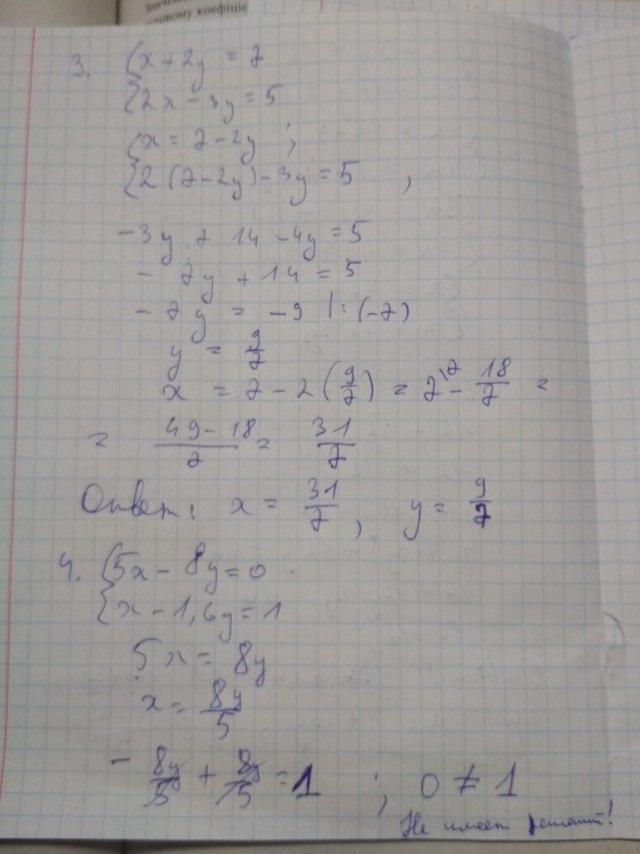 значен
стовому коефіціє
3. { x + 2y = 7
{ 2x - 3y = 5
{ x = 7 - 2y ;
{ 2(7 - 2y) - 3y = 5 ,
- 3y + 14 - 4y = 5
- 7y + 14 = 5
- 7y = -9 | : (-7)
y = 9/7
x = 7 - 2(9/7) = 7\7 - 18/7 =
= 49 - 18/7 = 31/7
Ответ: x = 31/7 , y = 9/7
4. { 5x - 8y = 0
{ x - 1,6y = 1
5x = 8y
x = 8y/5
- 8y/5 + 8y/5 = 1 ; 0 ≠ 1
Не имеет решений!